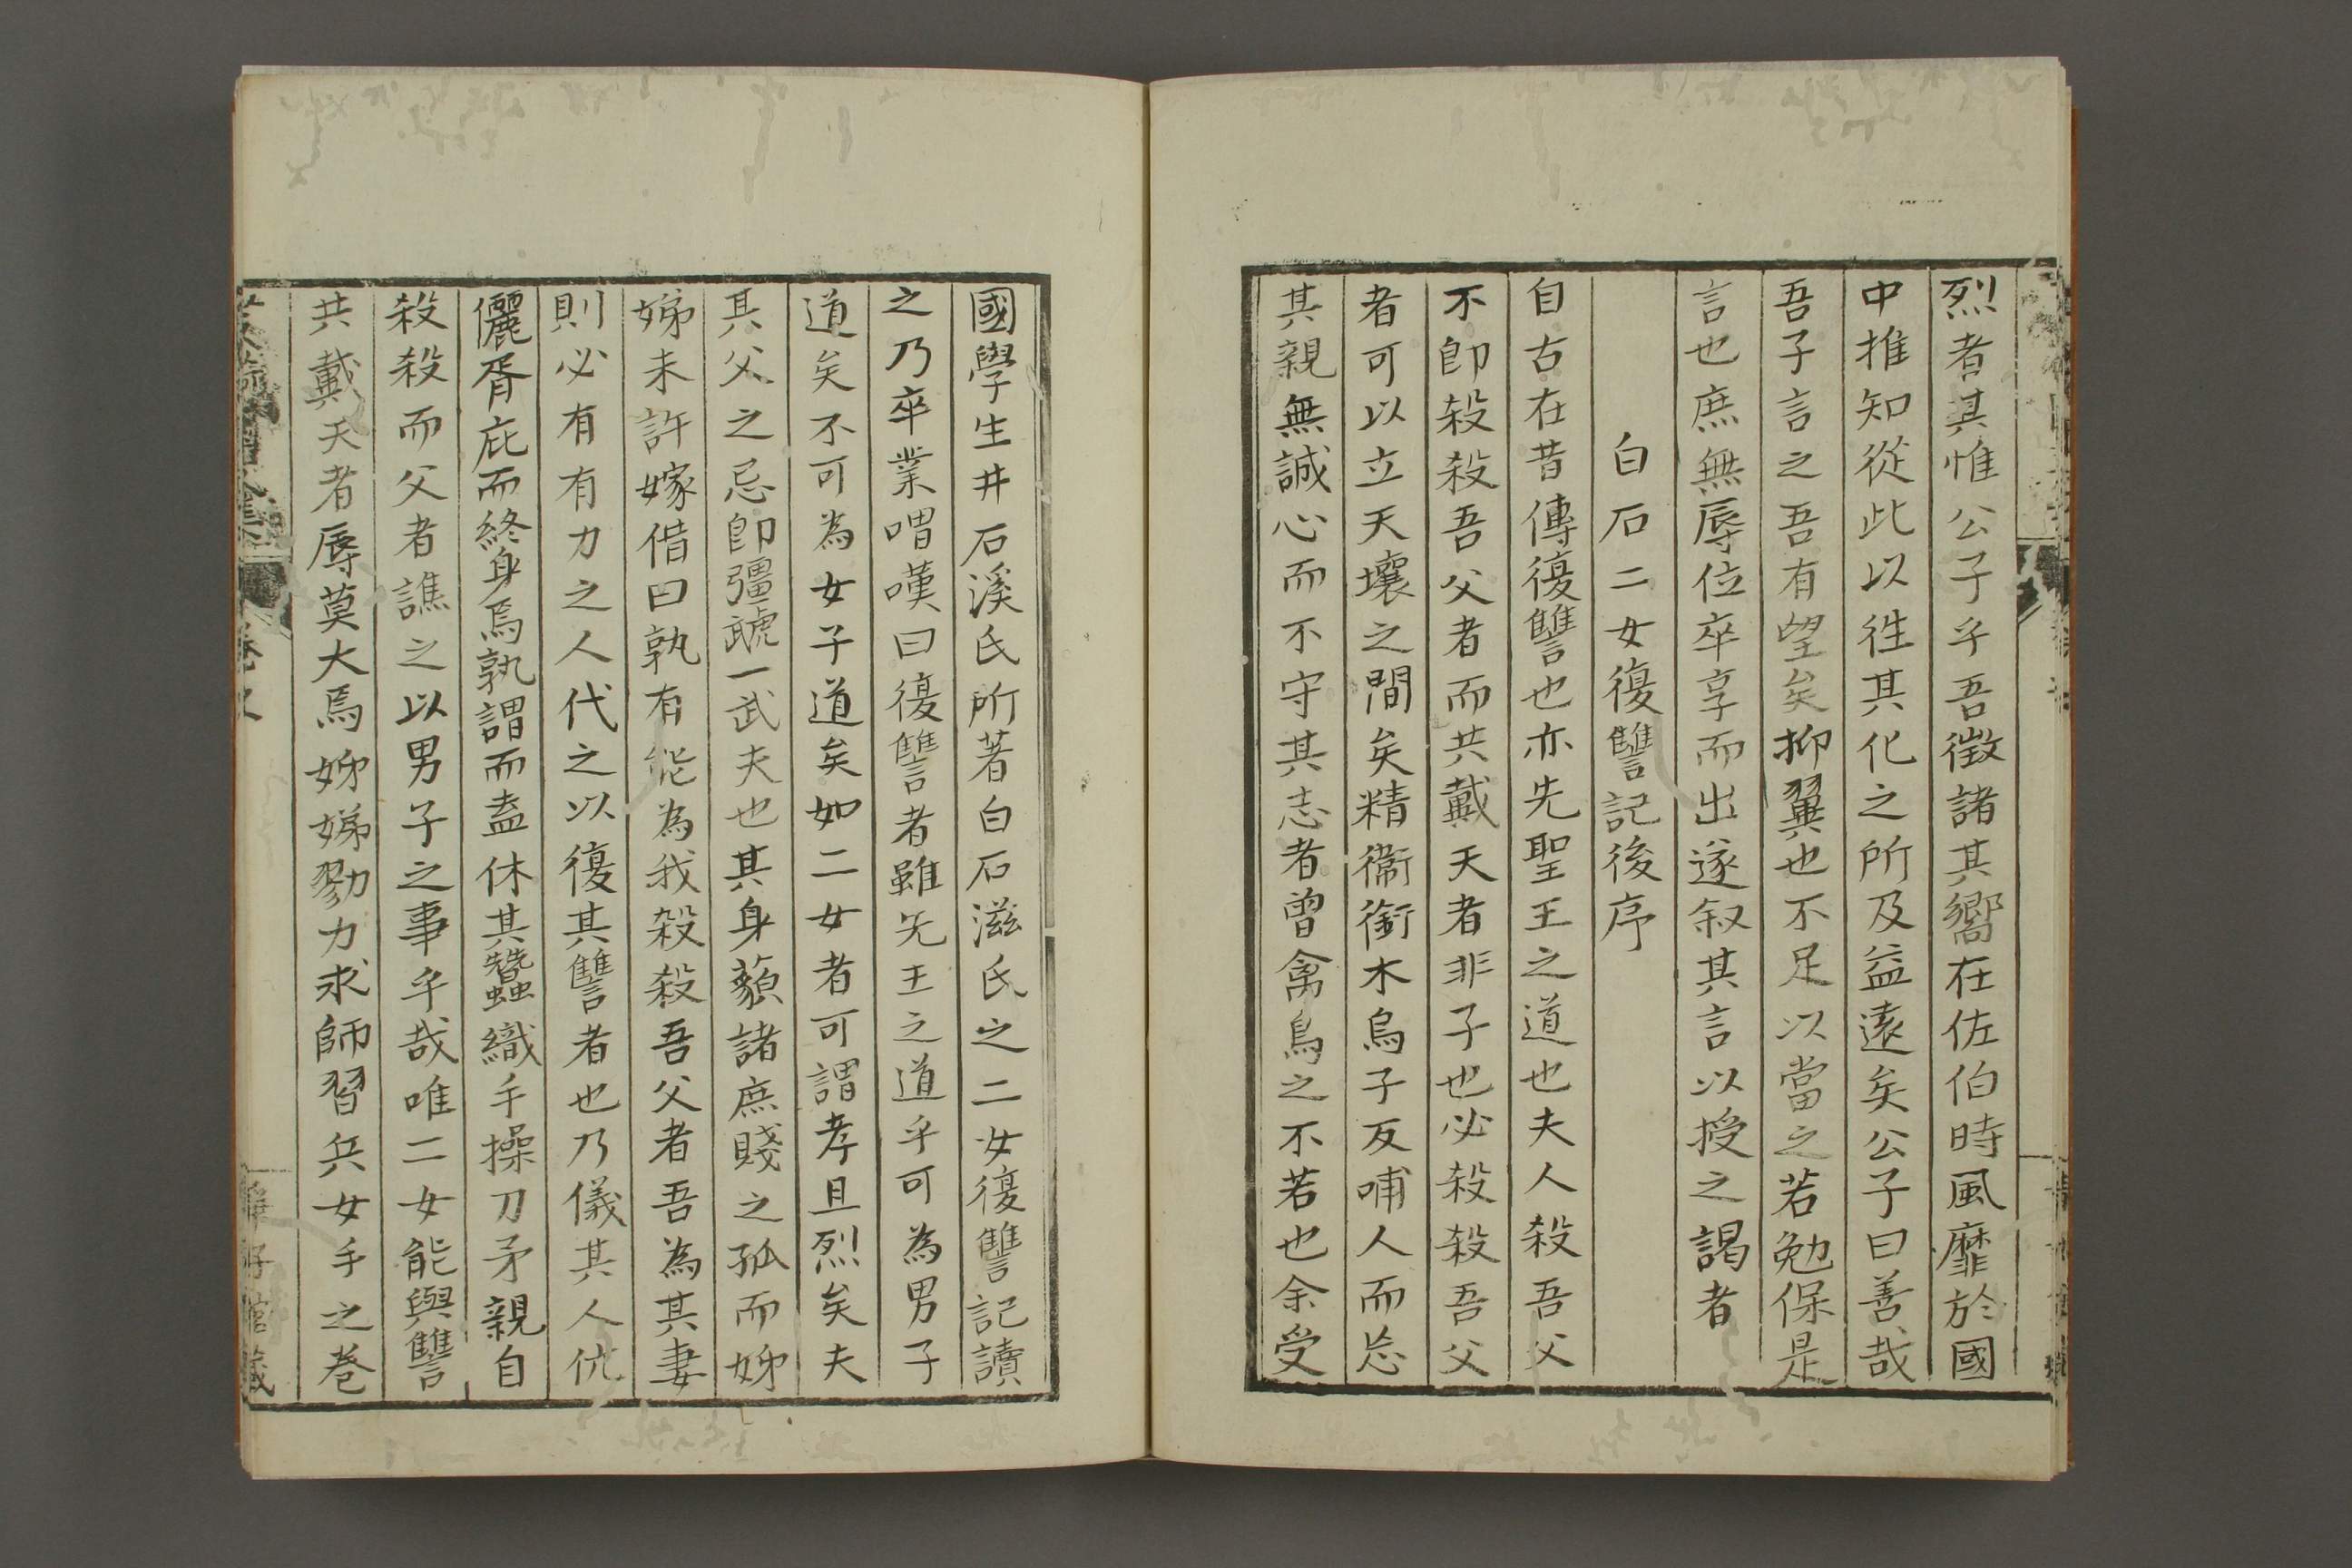 烈者其惟公子乎吾徴諸其嚮在佐伯時風靡於國
中推知從此以徃其化之所及益遠矣公子曰善哉
吾子言之吾有望矣抑翼也不足以當之若勉保是
言也庶無辱位卒享而出遂叙其言以授之謁者
白石二女復讐記後序
自古在昔傳復讐也亦先聖王之道也夫人殺吾父
不卽殺殺吾父者而共戴天者非子也必殺殺吾父
者可以立天壤之間矣精衞銜木烏子反哺人而忘
其親無誠心而不守其志者曾禽鳥之不若也余受
國學生井石溪氏所著白石滋氏之二女復讐記讀
之乃卒業喟嘆曰復讐者雖先王之道乎可為男子
道矣不可為女子道矣如二女者可謂孝且烈矣夫
其父之忌卽彊虣一武夫也其身藐諸庶賤之孤而姊
娣未許嫁借曰孰有能為我殺殺吾父者吾為其妻
則必有有力之人代之以復其讐者也乃儀其人伉
儷胥庇而終身焉孰謂而盍休其蠶織手操刀矛親自
殺殺而父者譙之以男子之事乎哉唯二女能與讐
共戴天者辱莫大焉姊娣勠力求師習兵女手之卷